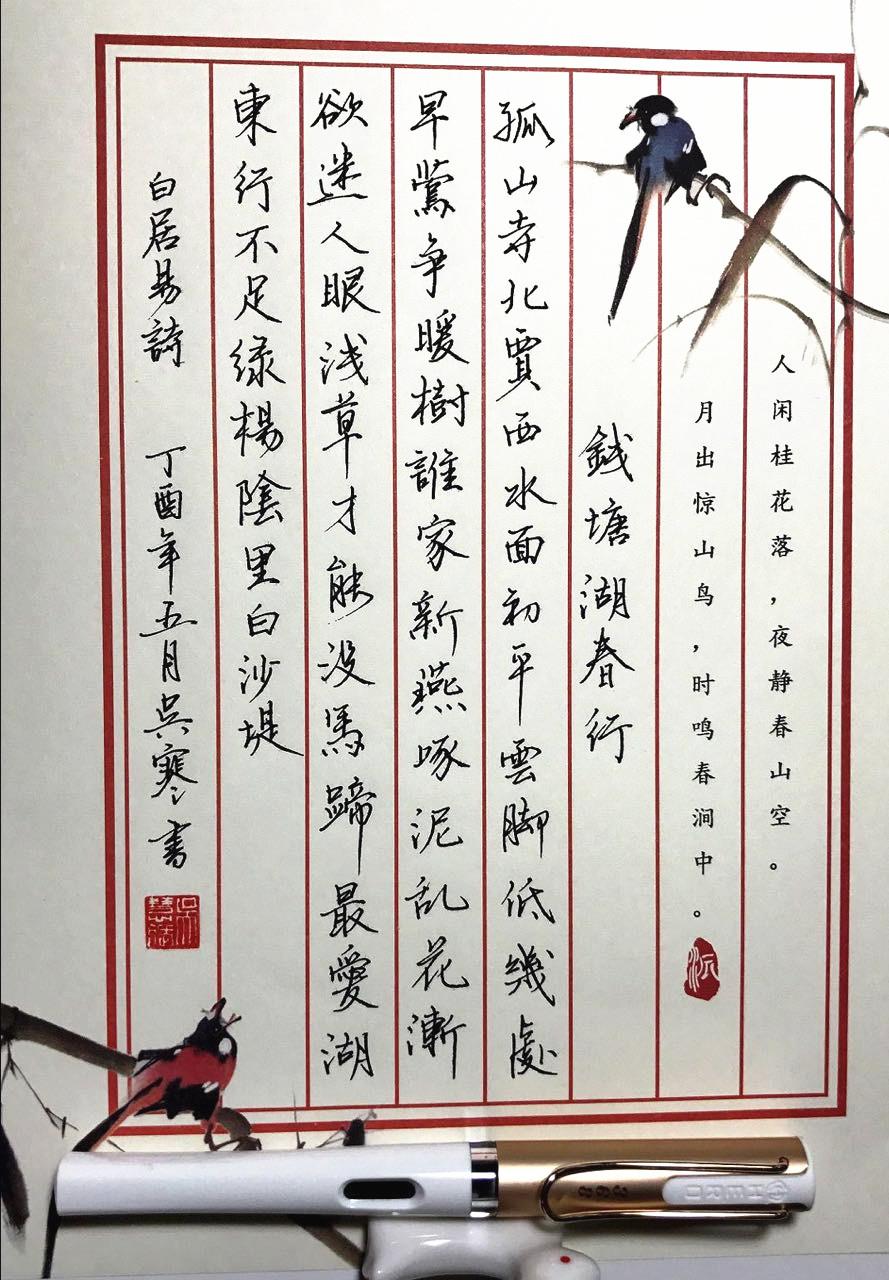 人闲桂花落，夜静春山空。
月出惊山鸟，时鸣春涧中。
錢塘湖春行
孤山寺北賈西水面初平雲脚低幾處
早鶯争暖樹誰家新燕啄泥乱花漸
欲迷人眼浅草才能没馬蹄最愛湖
東行不足绿楊陰里白沙堤
白居易詩 丁酉年五月吳寒書
HERO
368